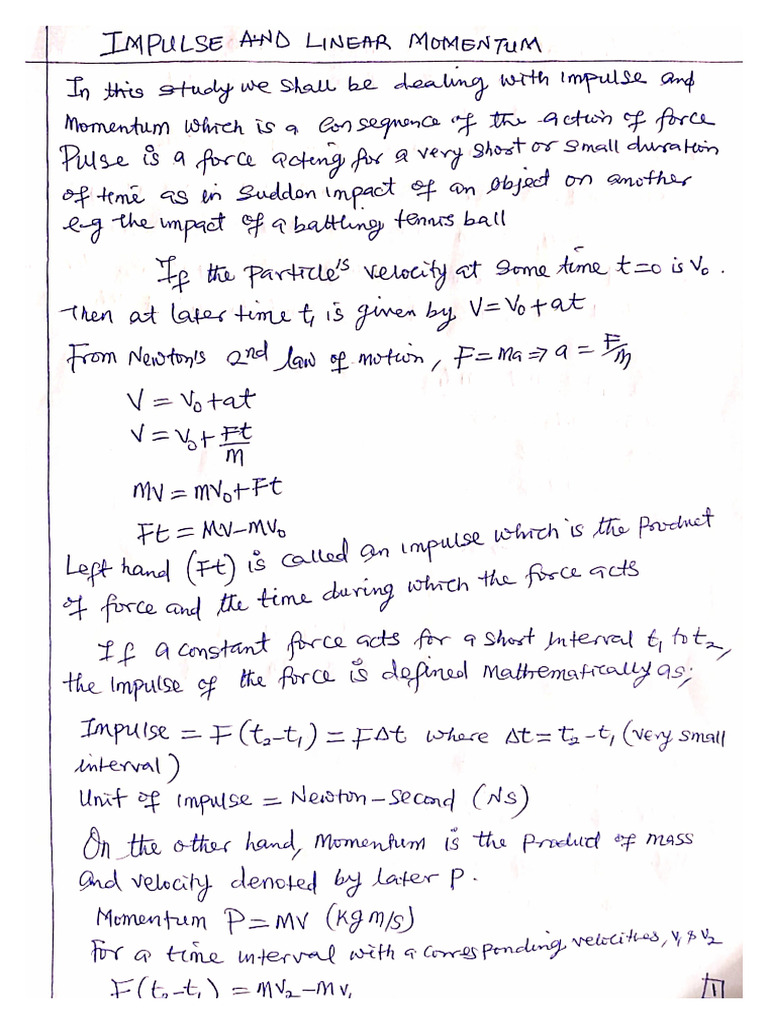 IMPULSE AND LINEAR MOMENTUM
In this study we shall be dealing with impulse and
Momentum which is a Consequence of the action of force
Pulse is a force acting for a very short or small duration
of time as in sudden impact of an object on another
e-g the impact of a battling tennis ball
If the particle's velocity at some time t=0 is V₀.
Then at later time t₁ is given by V=V₀+at
From Newton's 2nd law of motion, F=ma⇒a=F/m
V=V₀+at
V=V₀+Ft/m
MV=mV₀+Ft
Ft=MV-MV₀
Left hand (Ft) is called an impulse which is the product
of force and the time during which the force acts
If a constant force acts for a short interval t₁ to t₂,
the impulse of the force is defined Mathematically as;
Impulse = F(t₂-t₁) = FΔt where Δt=t₂-t₁ (very small
interval)
Unit of impulse = Newton-second (Ns)
On the other hand, Momentum is the product of mass
and velocity denoted by later P.
Momentum P=MV (kgm/s)
For a time interval with a corresponding velocities, V₁ & V₂
F(t₂-t₁) = MV₂-MV₁
1